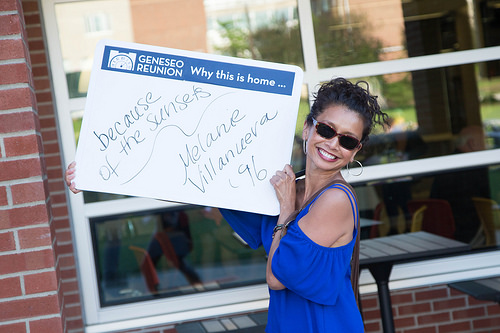 GENESEO
REUNION
Why this is home ...
because
of the sunsets
Melanie
Villanueva
'96